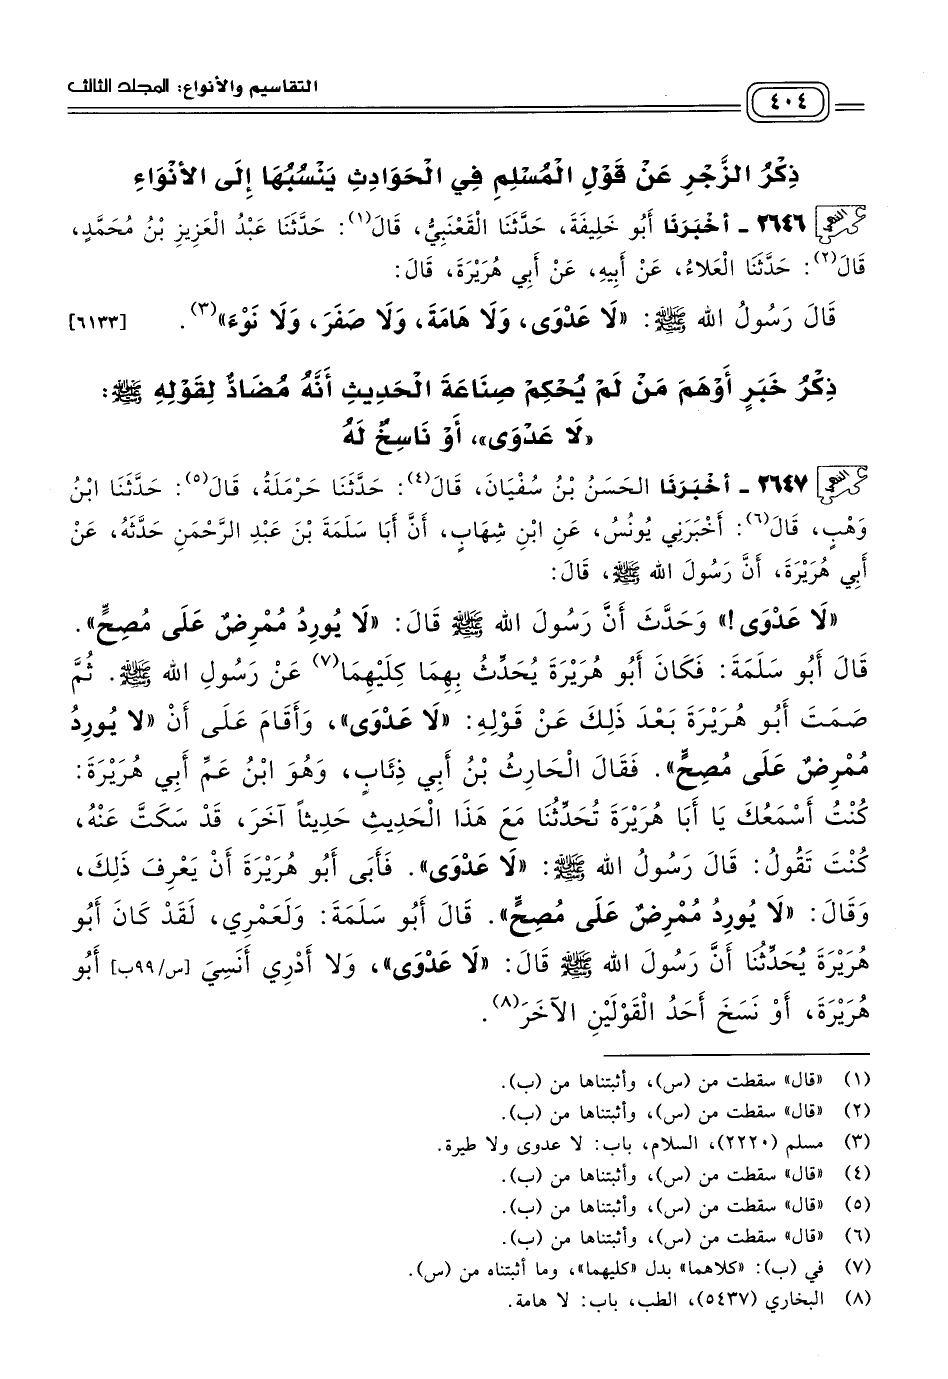 التقاسيم والأنواع: المجلد الثالث
٤٠٤
ذِكْرُ الزَّجْرِ عَنْ قَوْلِ الْمُسْلِمِ فِي الْحَوَادِثِ يَنْسُبُهَا إِلَى الأَنْوَاءِ
٢٦٤٦ - أَخْبَرَنَا أَبُو خَلِيفَةَ، حَدَّثَنَا القَعْنَبِيُّ، قَالَ(١): حَدَّثَنَا عَبْدُ العَزِيزِ بْنُ مُحَمَّدٍ،
قَالَ(٢): حَدَّثَنَا الْعَلاءُ، عَنْ أَبِيهِ، عَنْ أَبِي هُرَيْرَةَ، قَالَ:
قَالَ رَسُولُ الله ﷺ: «لَا عَدْوَى، وَلَا هَامَةَ، وَلَا صَفَرَ، وَلَا نَوْءَ»(٣). [٦١٣٣]
ذِكْرُ خَبَرٍ أَوْهَمَ مَنْ لَمْ يُحْكِمْ صِنَاعَةَ الْحَدِيثِ أَنَّهُ مُضَادٌّ لِقَوْلِهِ ﷺ:
«لَا عَدْوَى»، أَوْ نَاسِخٌ لَهُ
٢٦٤٧ - أَخْبَرَنَا الحَسَنُ بْنُ سُفْيَانَ، قَالَ(٤): حَدَّثَنَا حَرْمَلَةُ، قَالَ(٥): حَدَّثَنَا ابْنُ
وَهْبٍ، قَالَ(٦): أَخْبَرَنِي يُونُسُ، عَنِ ابْنِ شِهَابٍ، أَنَّ أَبَا سَلَمَةَ بْنَ عَبْدِ الرَّحْمَنِ حَدَّثَهُ، عَنْ
أَبِي هُرَيْرَةَ، أَنَّ رَسُولَ الله ﷺ، قَالَ:
«لَا عَدْوَى!» وَحَدَّثَ أَنَّ رَسُولَ الله ﷺ قَالَ: «لَا يُورِدُ مُمْرِضٌ عَلَى مُصِحٍّ».
قَالَ أَبُو سَلَمَةَ: فَكَانَ أَبُو هُرَيْرَةَ يُحَدِّثُ بِهِمَا كِلَيْهِمَا(٧) عَنْ رَسُولِ الله ﷺ. ثُمَّ
صَمَتَ أَبُو هُرَيْرَةَ بَعْدَ ذَلِكَ عَنْ قَوْلِهِ: «لَا عَدْوَى»، وَأَقَامَ عَلَى أَنْ «لا يُورِدُ
مُمْرِضٌ عَلَى مُصِحٍّ». فَقَالَ الْحَارِثُ بْنُ أَبِي ذِئَابٍ، وَهُوَ ابْنُ عَمِّ أَبِي هُرَيْرَةَ:
كُنْتُ أَسْمَعُكَ يَا أَبَا هُرَيْرَةَ تُحَدِّثُنَا مَعَ هَذَا الْحَدِيثِ حَدِيثاً آخَرَ، قَدْ سَكَتَّ عَنْهُ،
كُنْتَ تَقُولُ: قَالَ رَسُولُ الله ﷺ: «لَا عَدْوَى». فَأَبَى أَبُو هُرَيْرَةَ أَنْ يَعْرِفَ ذَلِكَ،
وَقَالَ: «لَا يُورِدُ مُمْرِضٌ عَلَى مُصِحٍّ». قَالَ أَبُو سَلَمَةَ: وَلَعَمْرِي، لَقَدْ كَانَ أَبُو
هُرَيْرَةَ يُحَدِّثُنَا أَنَّ رَسُولَ الله ﷺ قَالَ: «لَا عَدْوَى»، وَلَا أَدْرِي أَنَسِيَ [س/٩٩ب] أَبُو
هُرَيْرَةَ، أَوْ نَسَخَ أَحَدُ الْقَوْلَيْنِ الآخَرَ(٨).
(١) «قال» سقطت من (س)، وأثبتناها من (ب).
(٢) «قال» سقطت من (س)، وأثبتناها من (ب).
(٣) مسلم (٢٢٢٠)، السلام، باب: لا عدوى ولا طيرة.
(٤) «قال» سقطت من (س)، وأثبتناها من (ب).
(٥) «قال» سقطت من (س)، وأثبتناها من (ب).
(٦) «قال» سقطت من (س)، وأثبتناها من (ب).
(٧) في (ب): «كلاهما» بدل «كليهما»، وما أثبتناه من (س).
(٨) البخاري (٥٤٣٧)، الطب، باب: لا هامة.